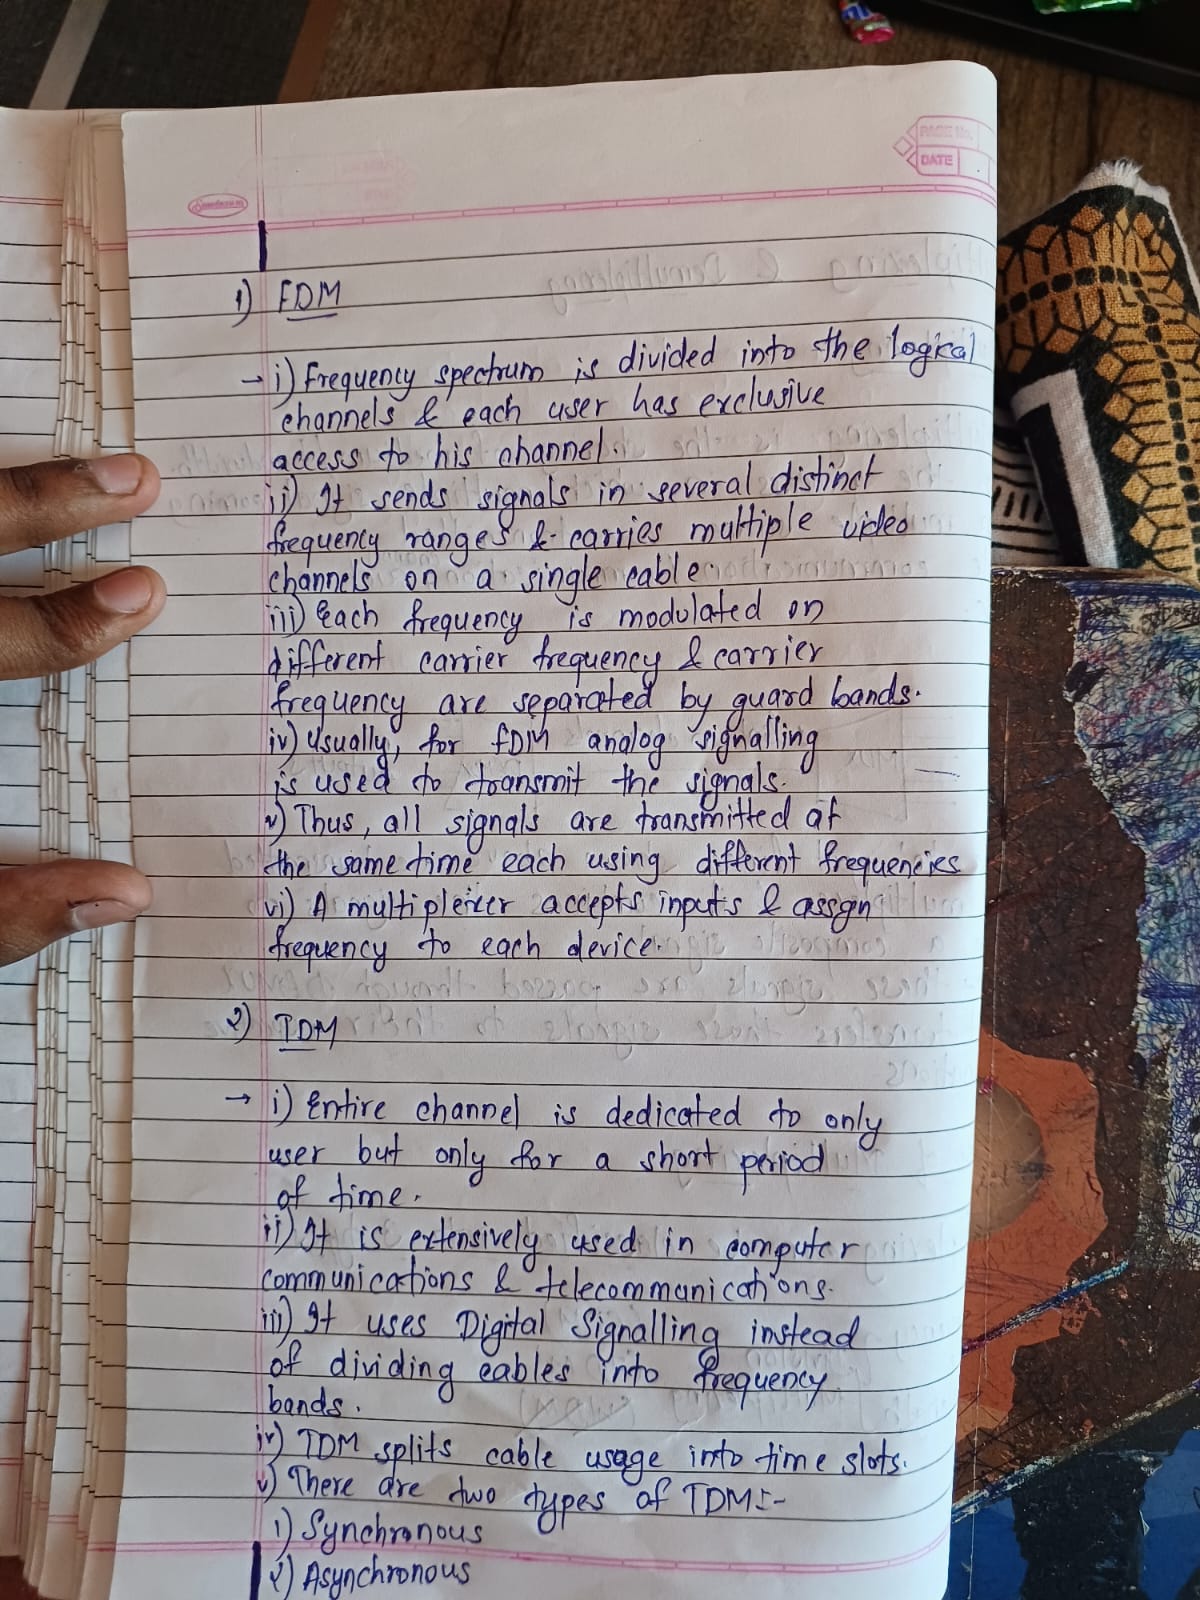 PAGE No.
DATE
1) FDM
→ i) Frequency spectrum is divided into the logical
channels & each user has exclusive
access to his channel.
ii) It sends signals in several distinct
frequency ranges & carries multiple video
channels on a single cable.
iii) Each frequency is modulated on
different carrier frequency & carrier
frequency are separated by guard bands.
iv) Usually, for FDM analog signalling
is used to transmit the signals.
v) Thus, all signals are transmitted at
the same time each using different frequencies
vi) A multiplexer accepts inputs & assgn
frequency to each device.
2) TDM
→ i) Entire channel is dedicated to only
user but only for a short period
of time.
ii) It is extensively used in computer
communications & telecommunications.
iii) It uses Digital Signalling instead
of dividing cables into frequency
bands.
iv) TDM splits cable usage into time slots.
v) There are two types of TDM:-
1) Synchronous
2) Asynchronous